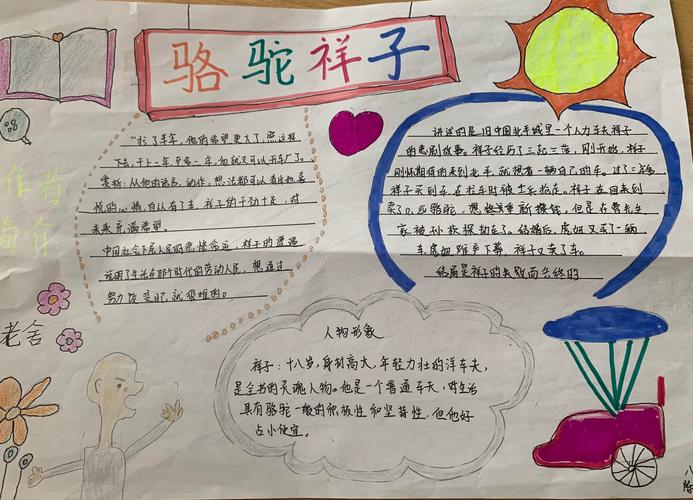 骆驼祥子
"拉了半年,他的希望更大了:照这样
下去,干上二年,至多二年,他就又可以开车厂了。
赏析:从他的语言、动作、想法都可以看出他喜
悦的心情,自从有了车,祥子的干劲十足,对
未来充满希望。
中国社会下层人民的悲惨命运,祥子的遭遇
说明了生活在那个时代的劳动人民,想通过
努力改变自己,就很难的。
讲述的是旧中国北平城里一个人力车夫祥子
的悲剧故事。祥子经历了三起三落,刚开始,祥子
刚怀期待的来到北平,就想有一辆自己的车。过了三年
祥子买到车,在拉车时被士兵抢走,祥子在回来到
卖了几匹骆驼,想攒钱重新
家被孙侦探掏走了。结婚后,虎妞又买了一辆
车虎妞难产下葬,祥子又卖了车。
结局是祥子的失败而告终的
作者
简介
老舍
人物形象
祥子:十八岁,身材高大,年轻力壮的洋车夫,
是全书的灵魂人物。他是一个普通车夫,对生活
具有骆驼一般的积极性和坚韧性,但他好
占小便宜。
八